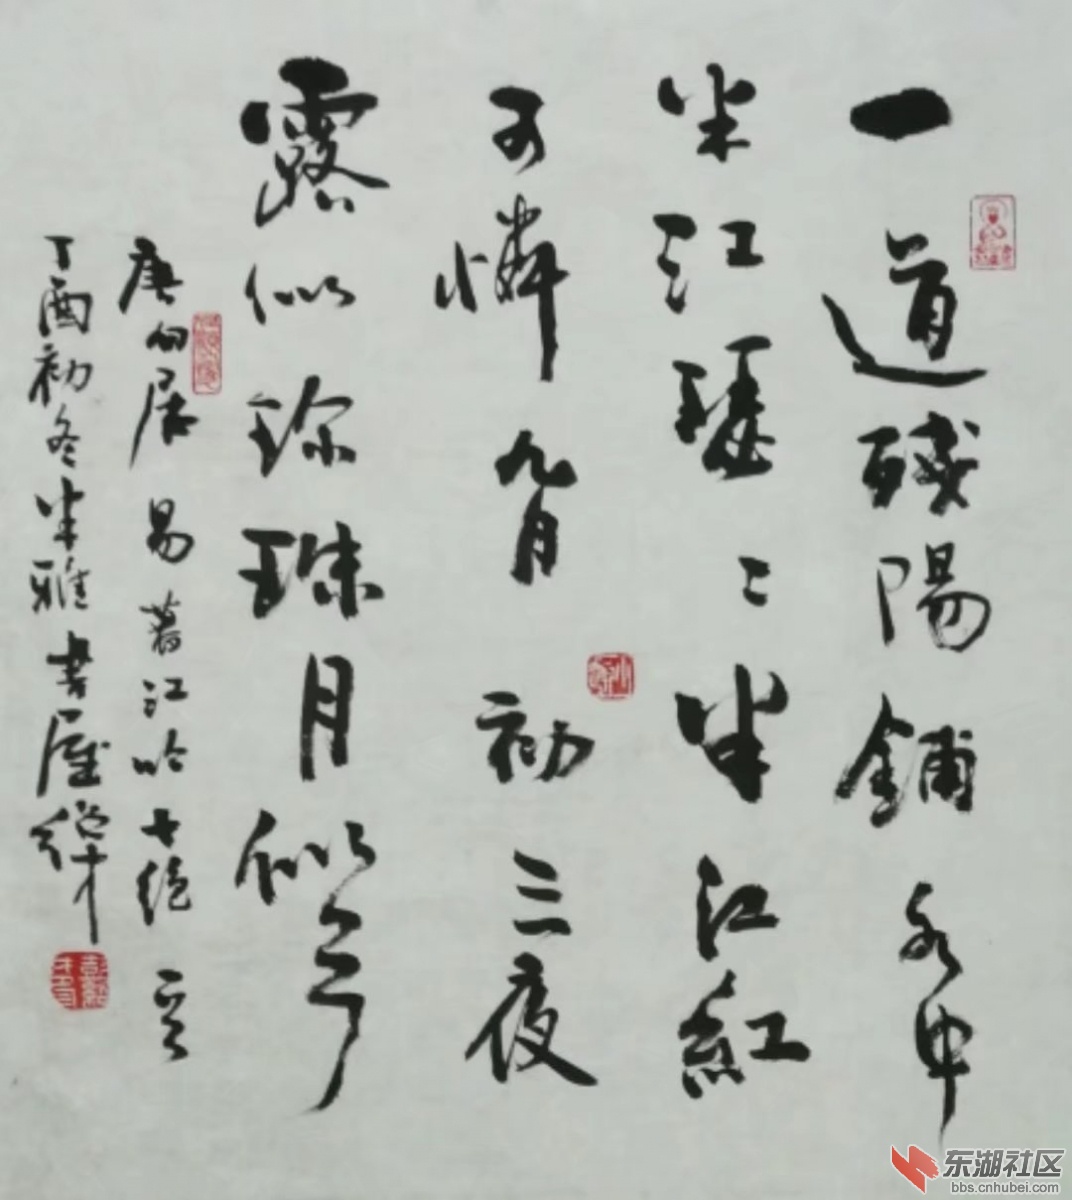 一道殘陽鋪水中
半江瑟々半江紅
可憐九月初三夜
露似珍珠月似弓
唐白居易暮江吟七絕
丁酉初冬半雅書屋
东湖社区
bbs.cnhubei.com